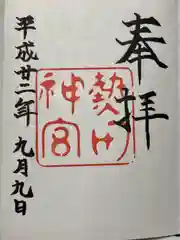 奉拝
熱田神宮
平成廿二年 九月九日